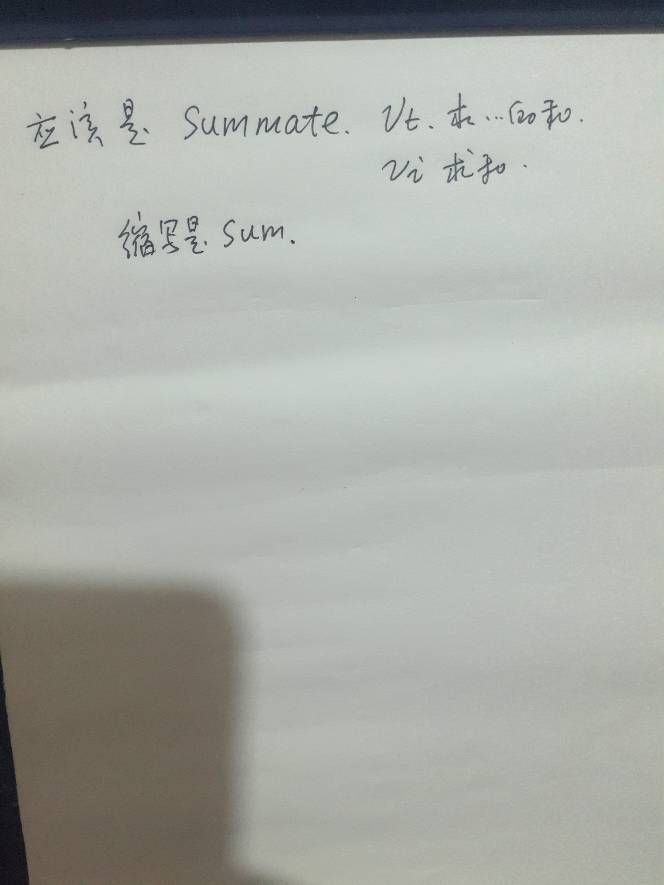 应该是 summate. vt. 求…的和.
vi 求和.
缩写是 sum.